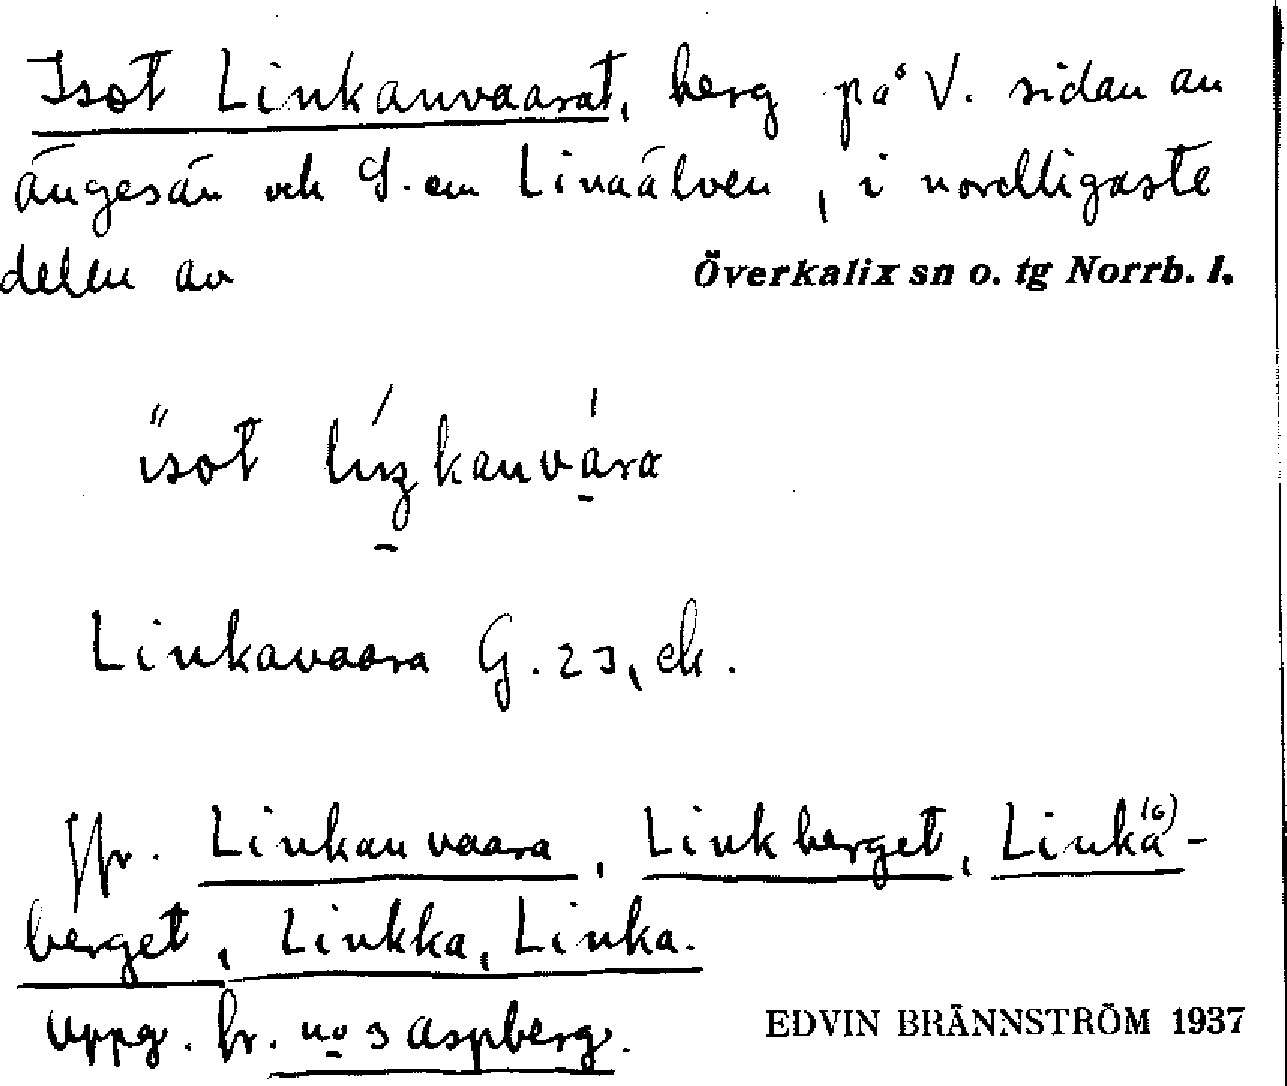 Isot Linkanvaarat, berg på V. sidan av
ängesån och S. om Linaälven, i nordligaste
delen av Överkalix sn o. tg Norrb. l.
isot liŋkanvara
Linkavaara G. 23, ek.
Jfr. Linkanvaara, Linkberget, Linka-
berget, Linkka, Linka.
Uppg. fr. no 3 Aspberg.
EDVIN BRÄNNSTRÖM 1937